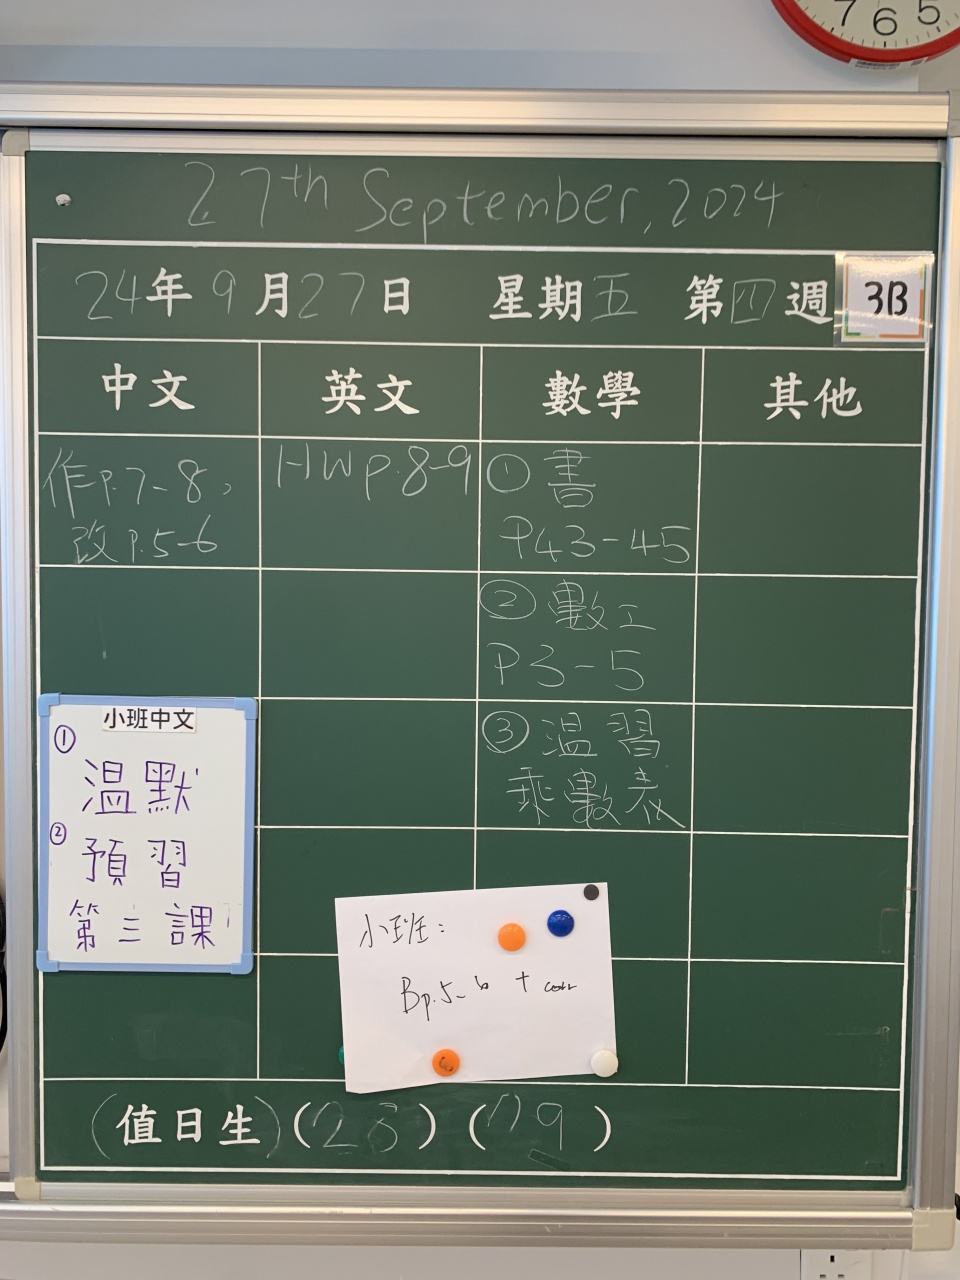 7 6 5
27th September, 2024
24年9月27日 星期五 第四週 3B
中文 英文 數學 其他
作p.7-8,
改p.5-6
HW p.8-9
① 書
P43-45
② 數工
P3-5
③ 温習
乘數表
小班中文
① 温默
② 預習
第三課
小班:
Bp.5-6 + corr
(值日生) (28) (29)